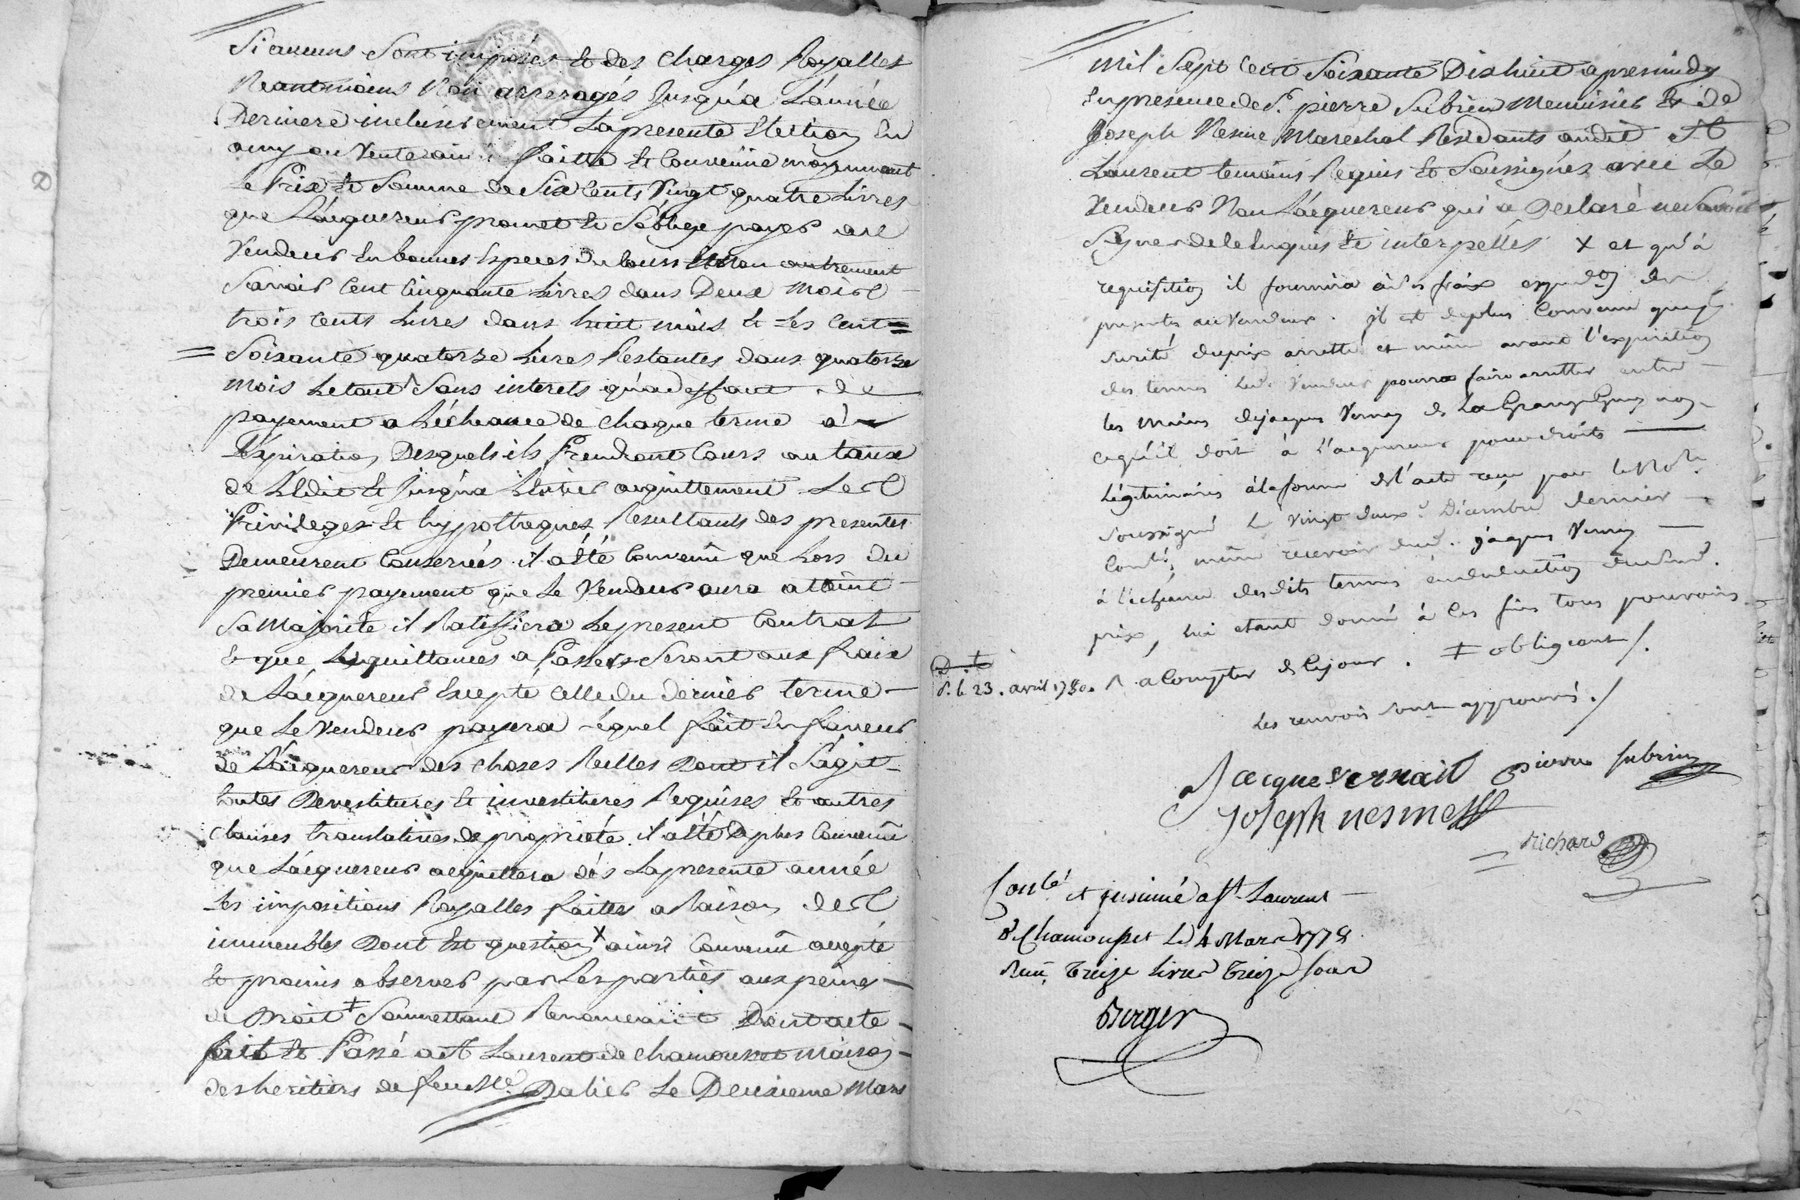 Si aucuns Sont imposés Et des charges Royalles
Neantmoins Non arreragés Jusqu'a L'année
Derniere inclusivement La presente Election En
amy ou Vente ainsi faitte Et Convenüe moyennant
Le Prix Et Somme de Six Cents Vingt quatre Livres
que L'acquereur promet Et S'oblige payer au
Vendeur En bonnes Especes du Cours Et Non autrement
Savoir Cent Cinquante Livres dans Deux mois
trois Cents Livres dans huit mois Et Les Cent =
= Soixante quatorze Livres Restantes dans quatorze
mois Le tout Sans interets qu'a deffaut de
payement a L'écheance de Chaque terme a
L'expiration Desquels ils Prendront Cours au taux
de L'Edit Et Jusqu'a L'entier acquittement Les
Privileges Et hypotheques Resultants des presentes
Demeurent Conservées il a été Convenü que Lors du
premier payement que Le Vendeur aura atteint
Sa Majorité il Ratiffiera Le present Contrat
Et que Les quittances a Passer Seront aux fraix
de L'acquereur Excepté Celle du dernier terme —
que Le Vendeur payera — équel fait En faveur
De L'acquereur des choses Reelles Dont il S'agit
toutes Devestitures Et investitures Requises Et autres
Clauses translatives de proprieté il a été De plus Convenü
que L'acquereur acquittera dés La presente année
Les impositions Royalles faittes a Raison des
immeubles Dont Est question X ainsi Convenü accepté
Et promis observer par Les parties aux peines —
de Droit ‡ Soumettant Renoncant Dont acte —
fait Et Passé a St Laurent de Chamousset Maison —
des heritiers de feu Sr Dalier Le Deuxieme Mars
Mil Sept Cent Soixante Dix huit apres midy
En presence de Sr pierre Subrin Menuisier Et de
Joseph Nesme Marechal Residants audit St
Laurent temoins Requis Et Soussignés avec Le
Vendeur Non L'acquereur qui a Declaré ne Savoir
Signer de Ce Enquis Et interpellés X et qu'à
requisition il fournira à ses fraix expedon des
presentes au Vendeur. il est deplus Convenu que p
sureté du prix arretté et même avant l'expiration
des termes Led. Vendeur pourra faire arretter entre
les mains de jacques Vernay de La
ce qu'il doit à l'acquereur pour droits —
Légitimaires à la forme de l'acte reçu par le Notre
soussigné le vingt deux Décembre dernier —
Conlé, même recevoir dud. jacques Vernay —
à l'echeance desdits termes en deduction dudit
prix, lui etant donné à Ces fins tous pouvoirs
P. le 23. avril 1780. ∧ a Compter de Cejour. ‡ obligeant /.
Les renvois sont approuvés. /
Jacque Vernait pierre subrin
Joseph nesme
Richard
Conlé et insinué a St Laurent —
de Chamousset Le 4 Mars 1778
Reçu Treize livres Treize sous
Berger